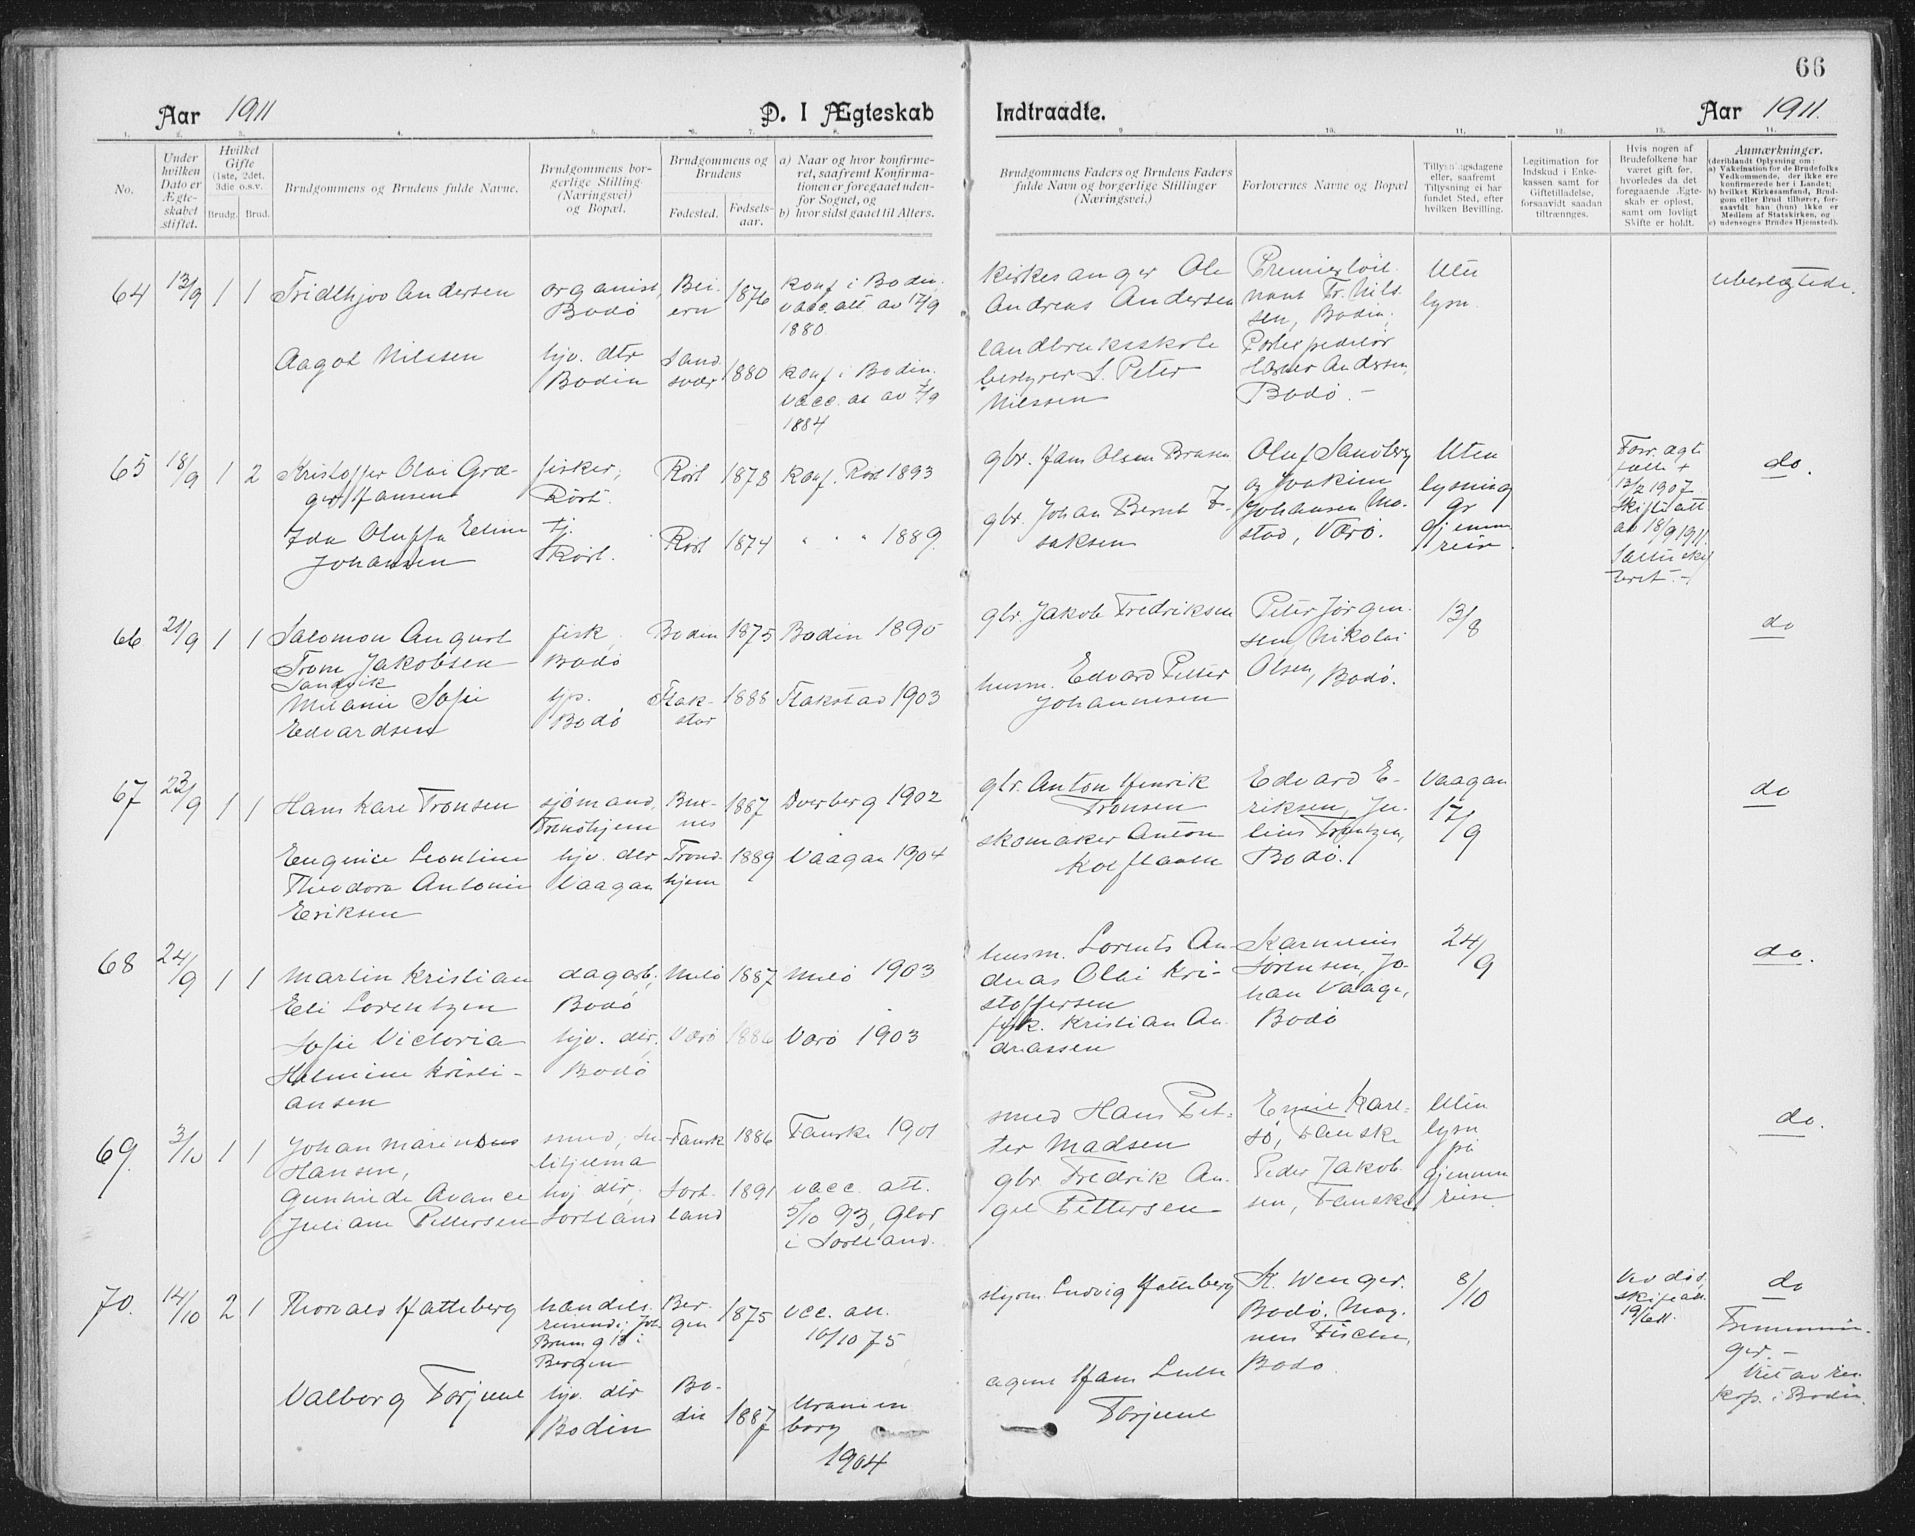 66
Aar 1911
D. I Ægteskab
Indtraadte.
Aar 1911.
1. 2. 3. 4. 5. 6. 7. 8. 9 10. 11. 12. 13. 14.
No.
Under hvilken Dato er Ægteskabet stiftet.
Hvilket Gifte (1ste, 2det, 3die o.s.v.
Brudg. Brud.
Brudgommens og Brudens fulde Navne.
Brudgommens borgerlige Stilling (Næringsvei) og Bopæl.
Brudgommens og Brudens
Fødested. Fødselsaar.
a) Naar og hvor konfirmeret, saafremt Konfirmationen er foregaaet udenfor Sognet, og
b) hvor sidst gaaet til Alters.
Brudgommens Faders og Brudens Faders fulde Navn og borgerlige Stillinger (Næringsvei.)
Forlovernes Navne og Bopæl
Tillysningsdagene eller, saafremt Tillysning ei har fundet Sted, efter hvilken Bevilling.
Legitimation for Indskud i Enkekassen samt for Giftetilladelse, forsaavidt saadan tiltrænges.
Hvis nogen af Brudefolkene har været gift før, hvorledes da det foregaaende Ægteskab er opløst, samt om lovligt Skifte er holdt.
Anmærkninger.
(deriblandt Oplysning om:
a) Vakcination for de Brudefolks Vedkommende, der ikke ere konfirmerede her i Landet;
b) hvilket Kirkesamfund, Brudgom eller Brud tilhører, forsaavidt han (hun) ikke er Medlem af Statskirken, og
c) udensogns Brudes Hjemsted).
64 13/9 1 1 Fridthjov Andersen
organist, Bodø
Beiern 1876
konf i Bodin, vacc. att av 12/9 1880.
kirkesanger Ole Andreas Andersen
Premierløitnant Fr. Nilssen, Bodin;
Uten lysn.
ubeslegtede.
Aagot Nilssen
hjv. dtr Bodin
Sandsvær 1880
konf i Bodin.
1884
landbruksskole bestyrer S. Peter Nilssen
Andersen, Bodø. -
65 18/9 1 2 Kristoffer Olai Græger Hansen
fisker, Røst.
Røst 1878
konf. Røst 1893
gbr. Hans Olsen
Oluf Sandberg og Joakim Johansen Mostad, Værø.
Uten lysning pr gjennemreise.
13/2 1907.
Skifteatt av 18/9 1911.
do.
Ida Oluffa Eline Johansen
tj. Røst.
Røst 1874
" " " 1889.
gbr. Johan Bernt Isaksen
66 21/9 1 1 Salomon August Jakobsen Sandvik
fisk, Bodø
Bodin 1875
Bodin 1890
gbr Jakob Fredriksen
Peter Jørgensen, Nikolai Olsen, Bodø.
13/8
do
Melanie Sofie Edvardsen
Bodø
Flakstad 1888
Flakstad 1903
husm. Edvard Petter Johannesen
67 23/9 1 1 Hans Kare Tronsen
sjømand, Trondhjem
Buxnes 1887
Dverberg 1902
gbr. Anton Henrik Tronsen
Edvard Eriksen, Julius Frantzen, Bodø.
Vaagan 17/9
do
Eugenie Leontine Theodora Antonie Eriksen
hjv. dtr Vaagan
Trondhjem 1889
Vaagan 1904
skomaker Anton
68 24/9 1 1 Martin Kristian Eli Lorentzen
dagarb., Bodø
Melø 1887
Melø 1903
husm. Lorents Andreas Olai Kristoffersen
Sørensen, Johan Vaage, Bodø
24/9
do.
Sofie Victoria Halmine Kristiansen
hjv. dtr, Bodø
Værø 1886
Værø 1903
fisk. Kristian Andreassen
69. 3/10 1 1 Johan Marinus Hansen,
smed, Sulitjelma
Fauske 1886
Fauske 1901
smed Hans Petter Madsen
Emil Karlsø, Fauske
Peder Jakobsen, Fauske
Uten lysn på gjennemreise
do.
Gunhilde Avance Juliane Pettersen
hjv dtr, Sortland
Sortland 1891
vacc. att. 5/10 93,
i Sortland.
gbr Fredrik Angel Pettersen
70. 14/10 2 1 Thorvald Hatteberg
handelsreisende, Joh. Brun
Bergen
Bergen 1875
vcc. att. 10/10 75
styrm. Ludvig Hatteberg
K. Wenger. Bodø. Magnus Fischer, Bodø.
8/10
Ved død, skifteatt. 19/6 11.
do
Valborg Torjene
hjv. dtr Bodin
Bodin 1887
Uranienborg 1904
agent Hans Torjene
i Bodin.